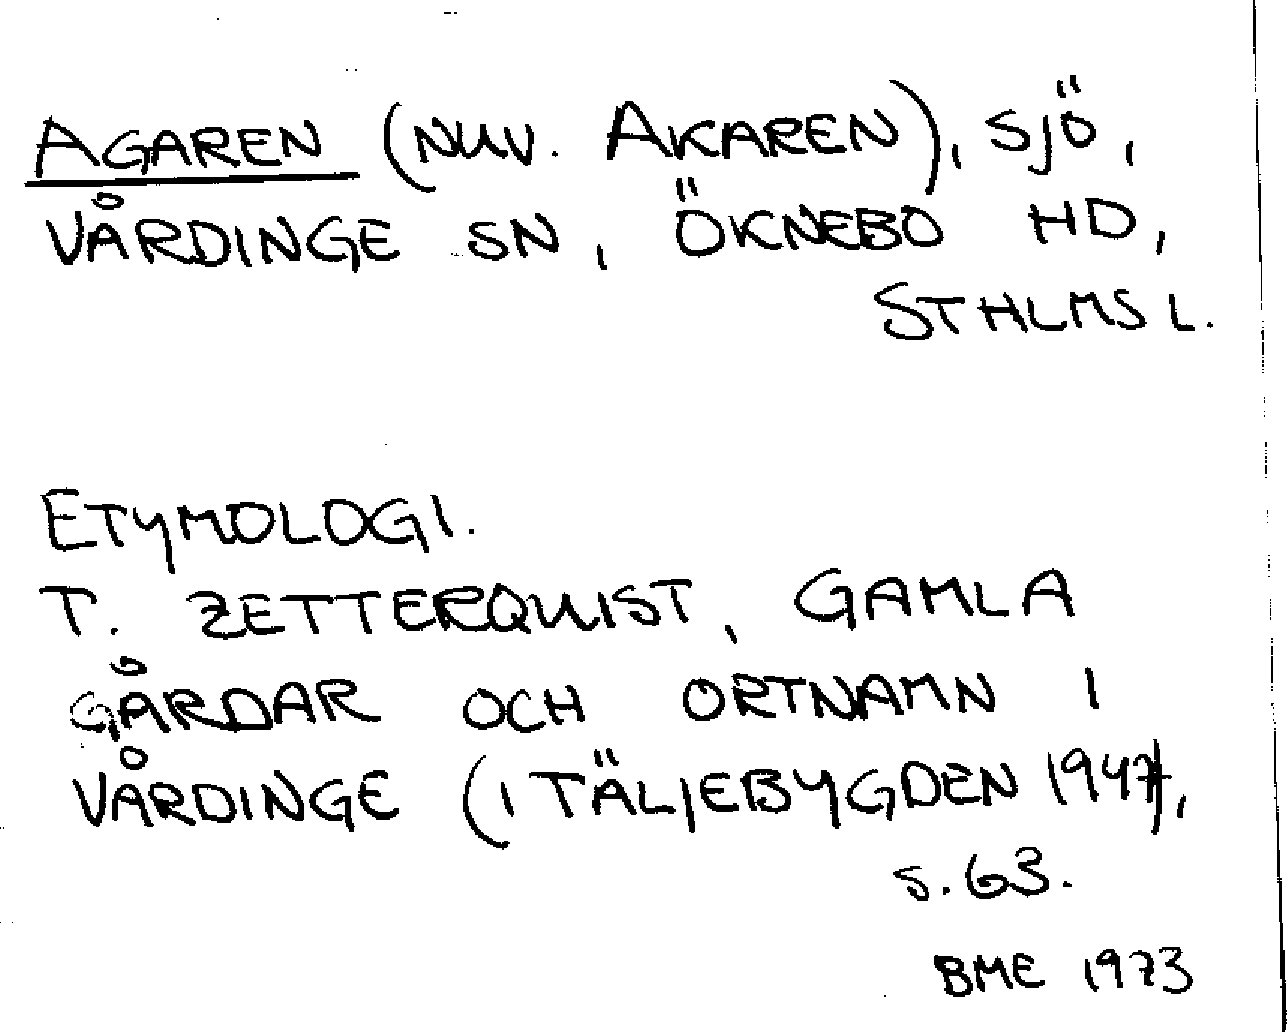 AGAREN (NUV. AKAREN), SJÖ,
VÅRDINGE SN, ÖKNEBO HD,
STHLMS L.
ETYMOLOGI.
T. ZETTERQUIST, GAMLA
GÅRDAR OCH ORTNAMN I
VÅRDINGE (I TÄLJEBYGDEN 1947),
S. 63.
BME 1973